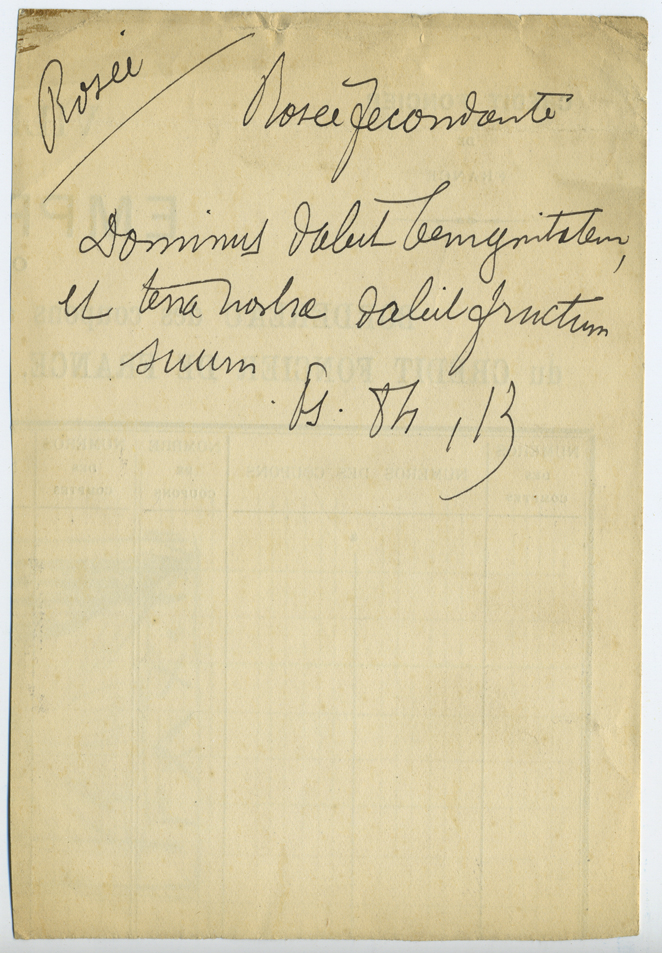 Rosée
Rosée fécondante
Dominus dabit benignitatem,
et terra nostra dabit fructum
suum.
Ps. 84, 13